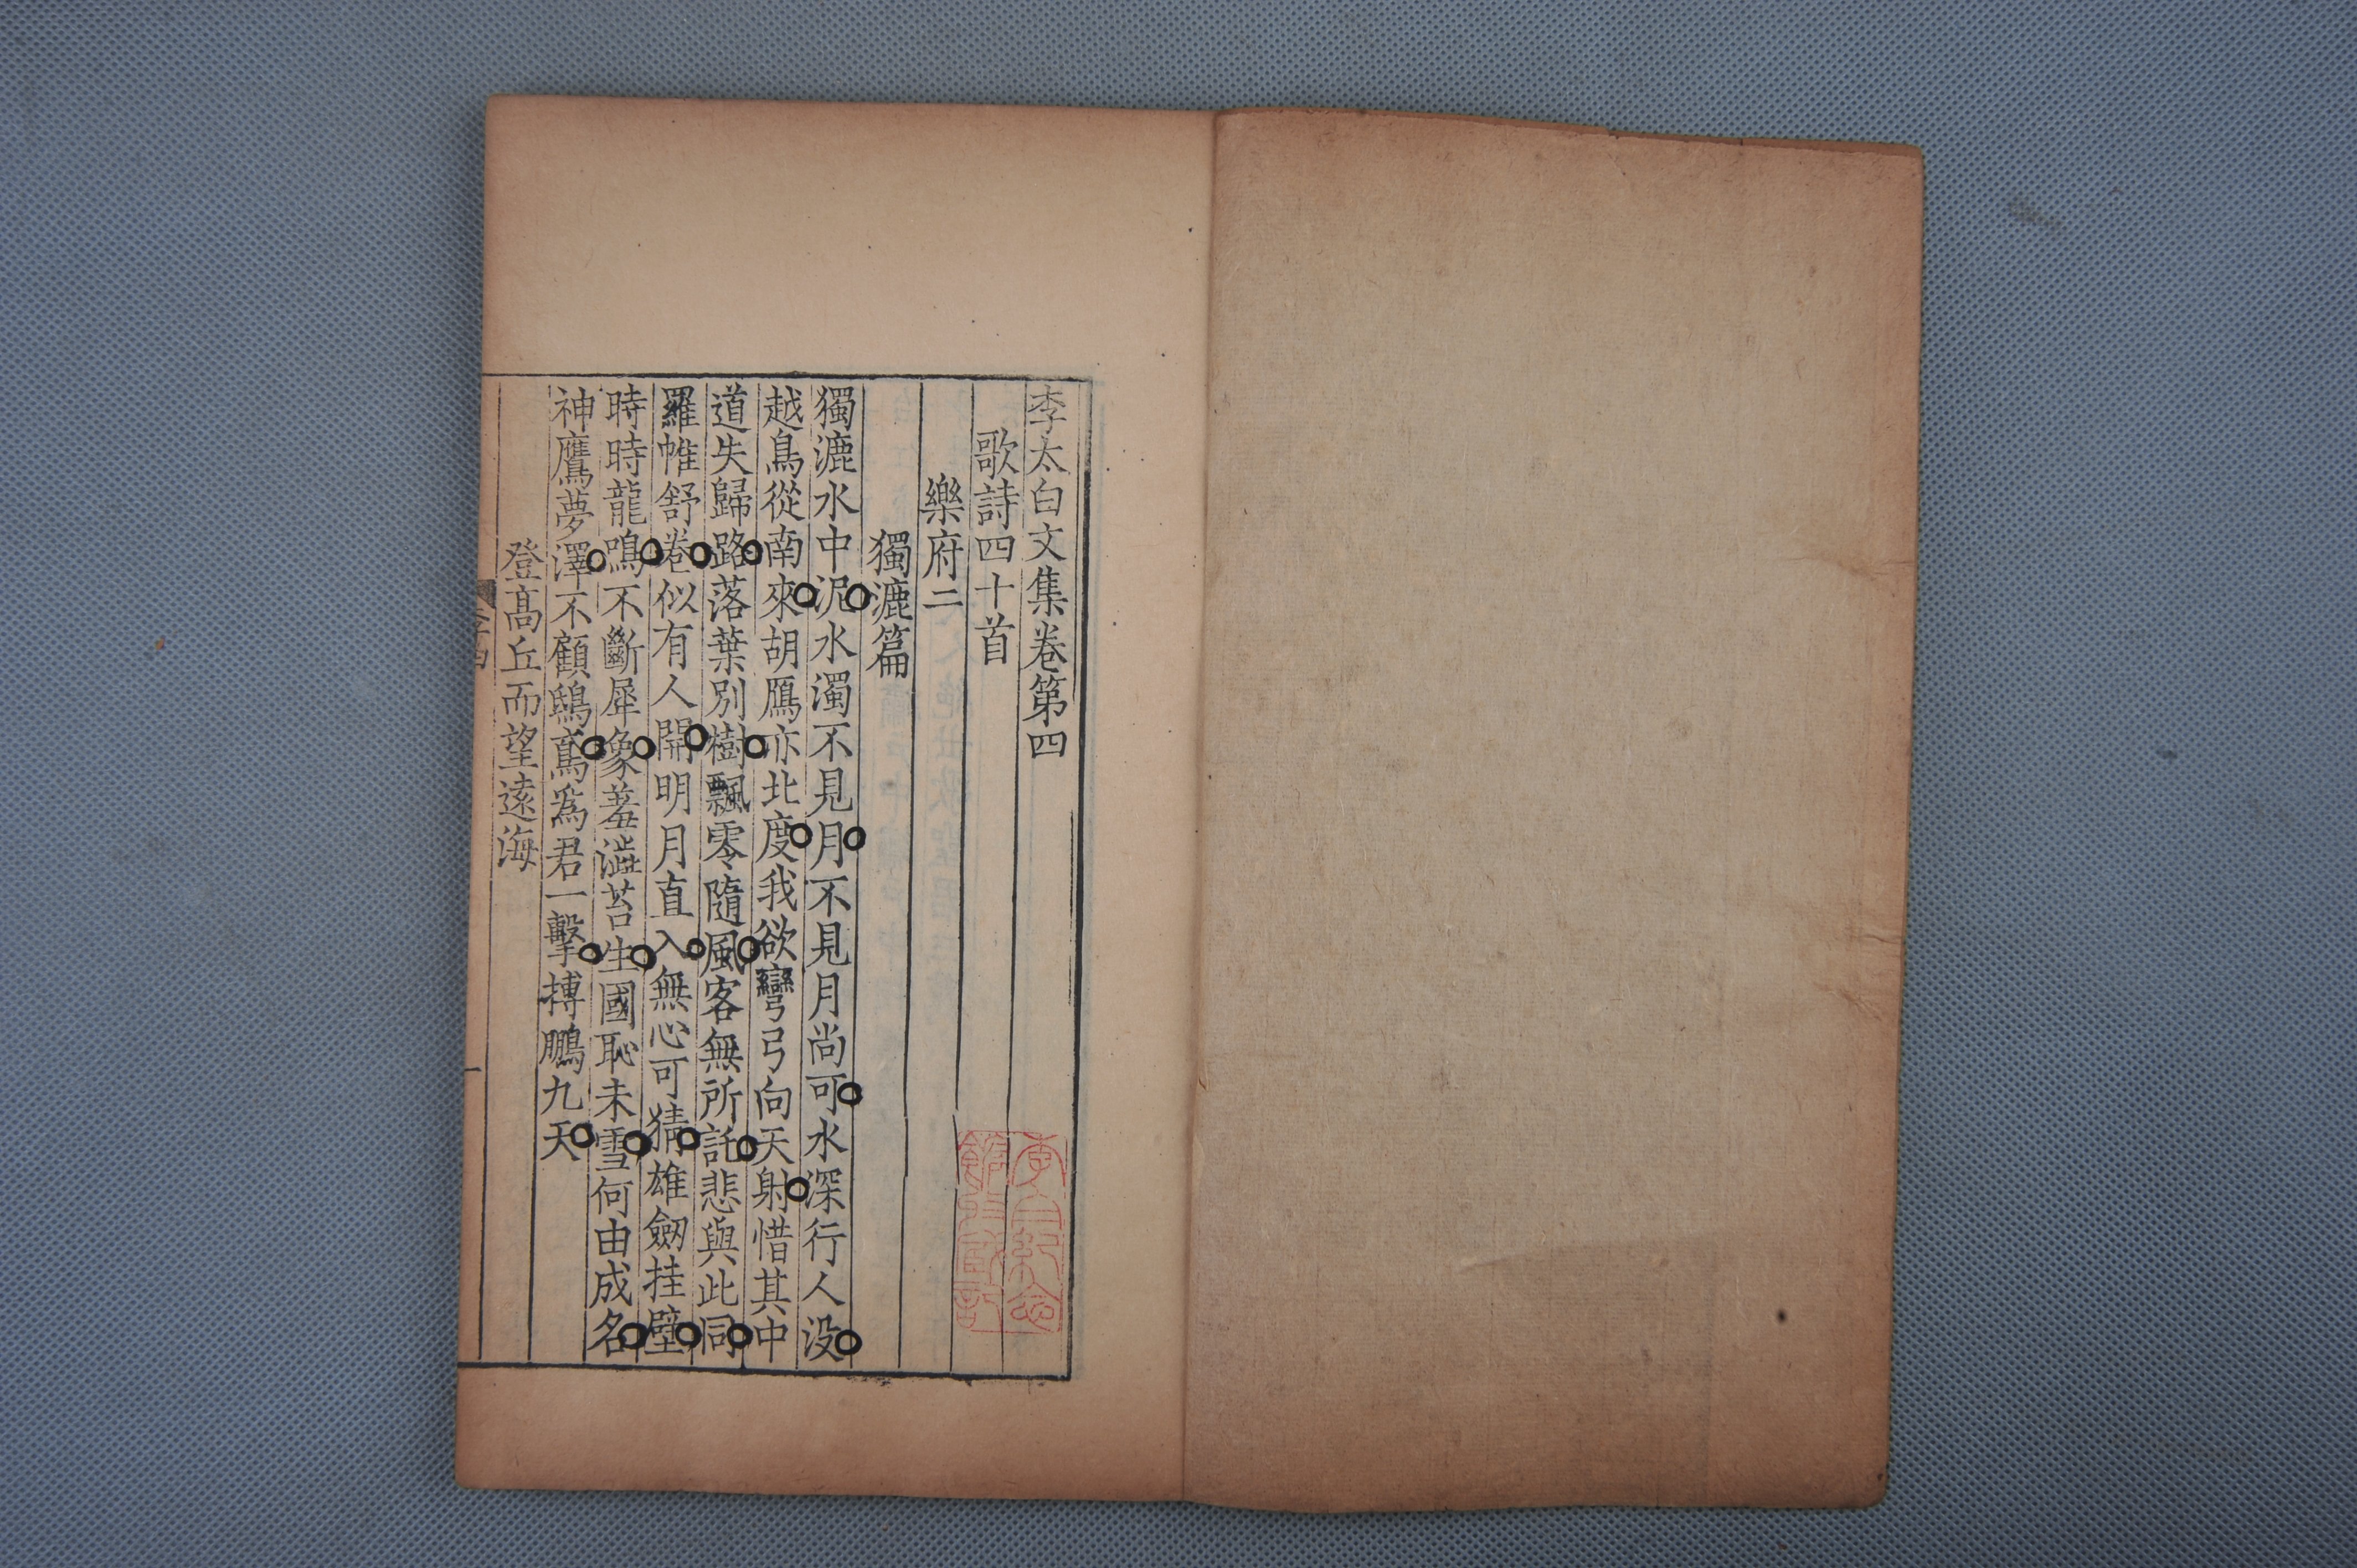 李太白文集卷第四
歌詩四十首
樂府二
獨漉篇
獨漉水中泥水濁不見月不見月尚可水深行人没
越鳥從南來胡鴈亦北度我欲彎弓向天射惜其中
道失歸路落葉別樹飄零隨風客無所託悲與此同
羅帷舒卷似有人開明月直入無心可猜雄劒挂壁
時時龍鳴不斷犀象羞澁苔生國恥未雪何由成名
神鷹夢澤不顧鴟鳶為君一擊搏鵬九天
登高丘而望遠海
李白紀念
館收藏記